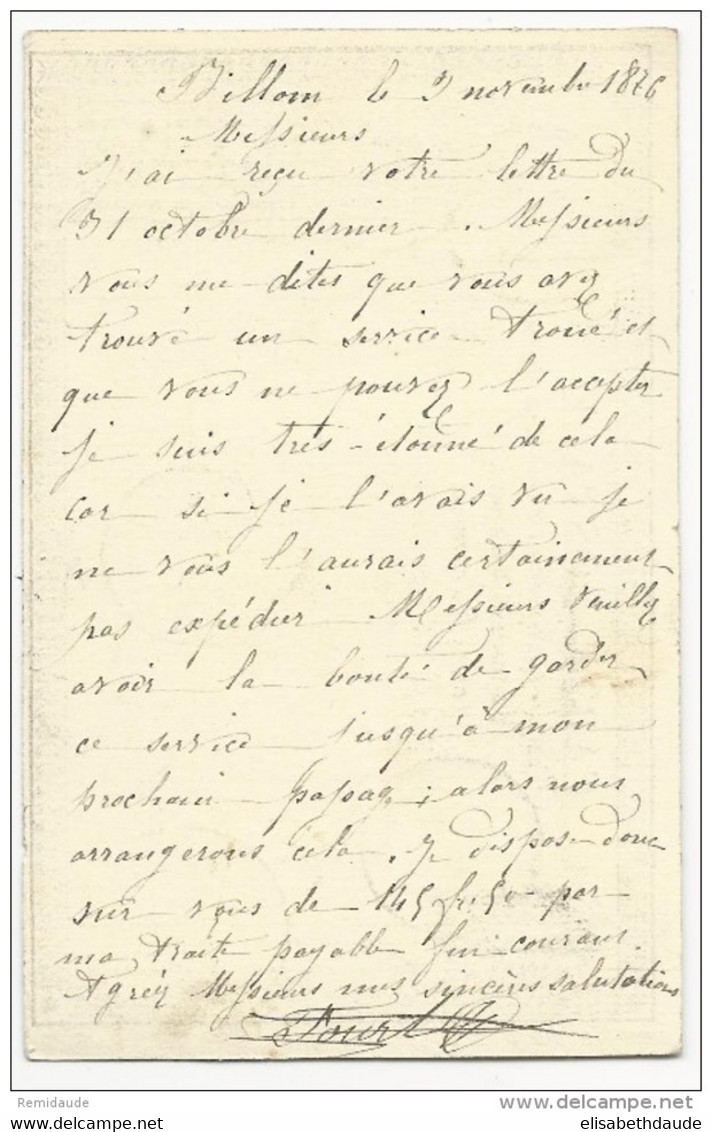 Billom le 3 novembre 1876
Messieurs
J'ai reçu votre lettre du
31 octobre dernier. Messieurs
vous me dites que vous avez
trouvé un service troué et
que vous ne pouvez l'accepter
je suis très-étonné de cela
car si je l'avais vu je
ne vous l'aurais certainement
pas expédier Messieurs veuillez
avoir la bonté de garder
ce service jusqu'à mon
prochain passage; alors nous
arrangerons cela. Je dispose donc
sur vous de 145 fr. 50 par
ma traite payable fin courant.
Agréez Messieurs mes sincères salutations
Remidaude
delcampe.net
elisabethdaude